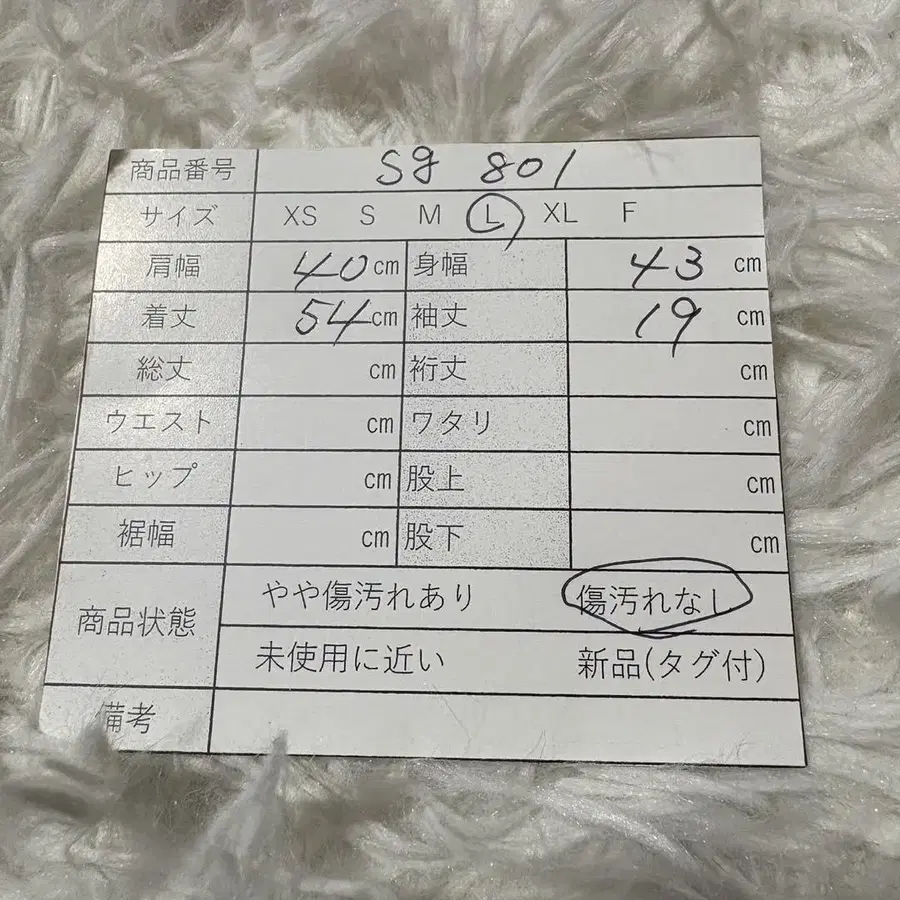 商品番号 Sg 801
サイズ XS S M L XL F
肩幅 40 cm 身幅 43 cm
着丈 54 cm 袖丈 19 cm
総丈 cm 裄丈 cm
ウエスト cm ワタリ cm
ヒップ cm 股上 cm
裾幅 cm 股下 cm
商品状態 やや傷汚れあり 傷汚れなし
未使用に近い 新品(タグ付)
備考